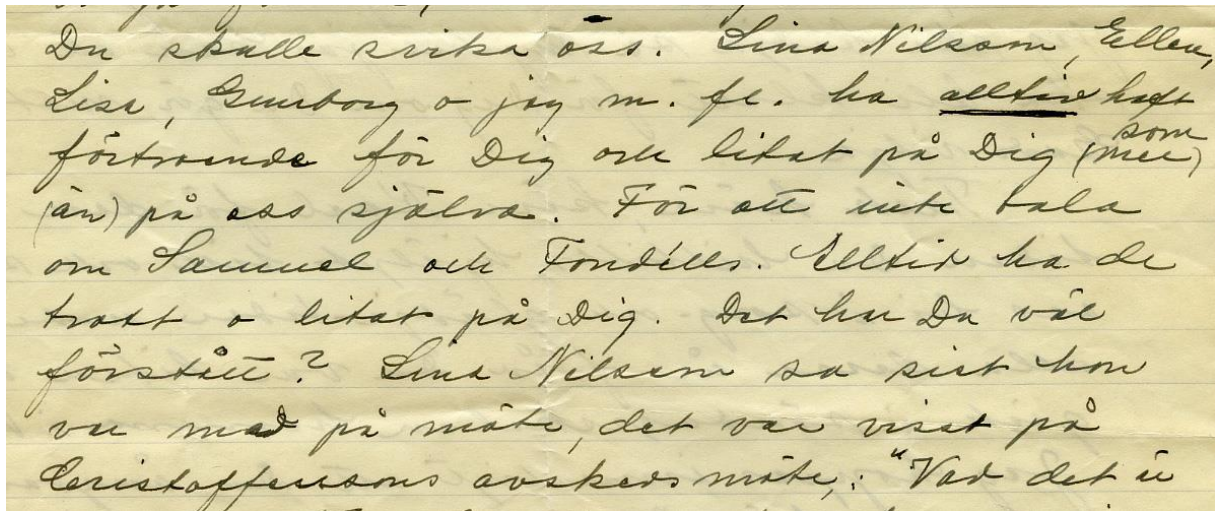 Du skulle svika oss. Lina Nilsson, Ellen,
Lisa, Gunborg o jag m. fl. ha alltid haft
förtroende för Dig och litat på Dig (mer) som
(än) på oss själva. För att inte tala
om Samuel och Fondélls. Alltid ha de
trott o litat på Dig. Det har Du väl
förstått? Lina Nilsson sa sist hon
var med på möte, det var visst på
Cristofferssons avskedsmöte,: "Vad det är